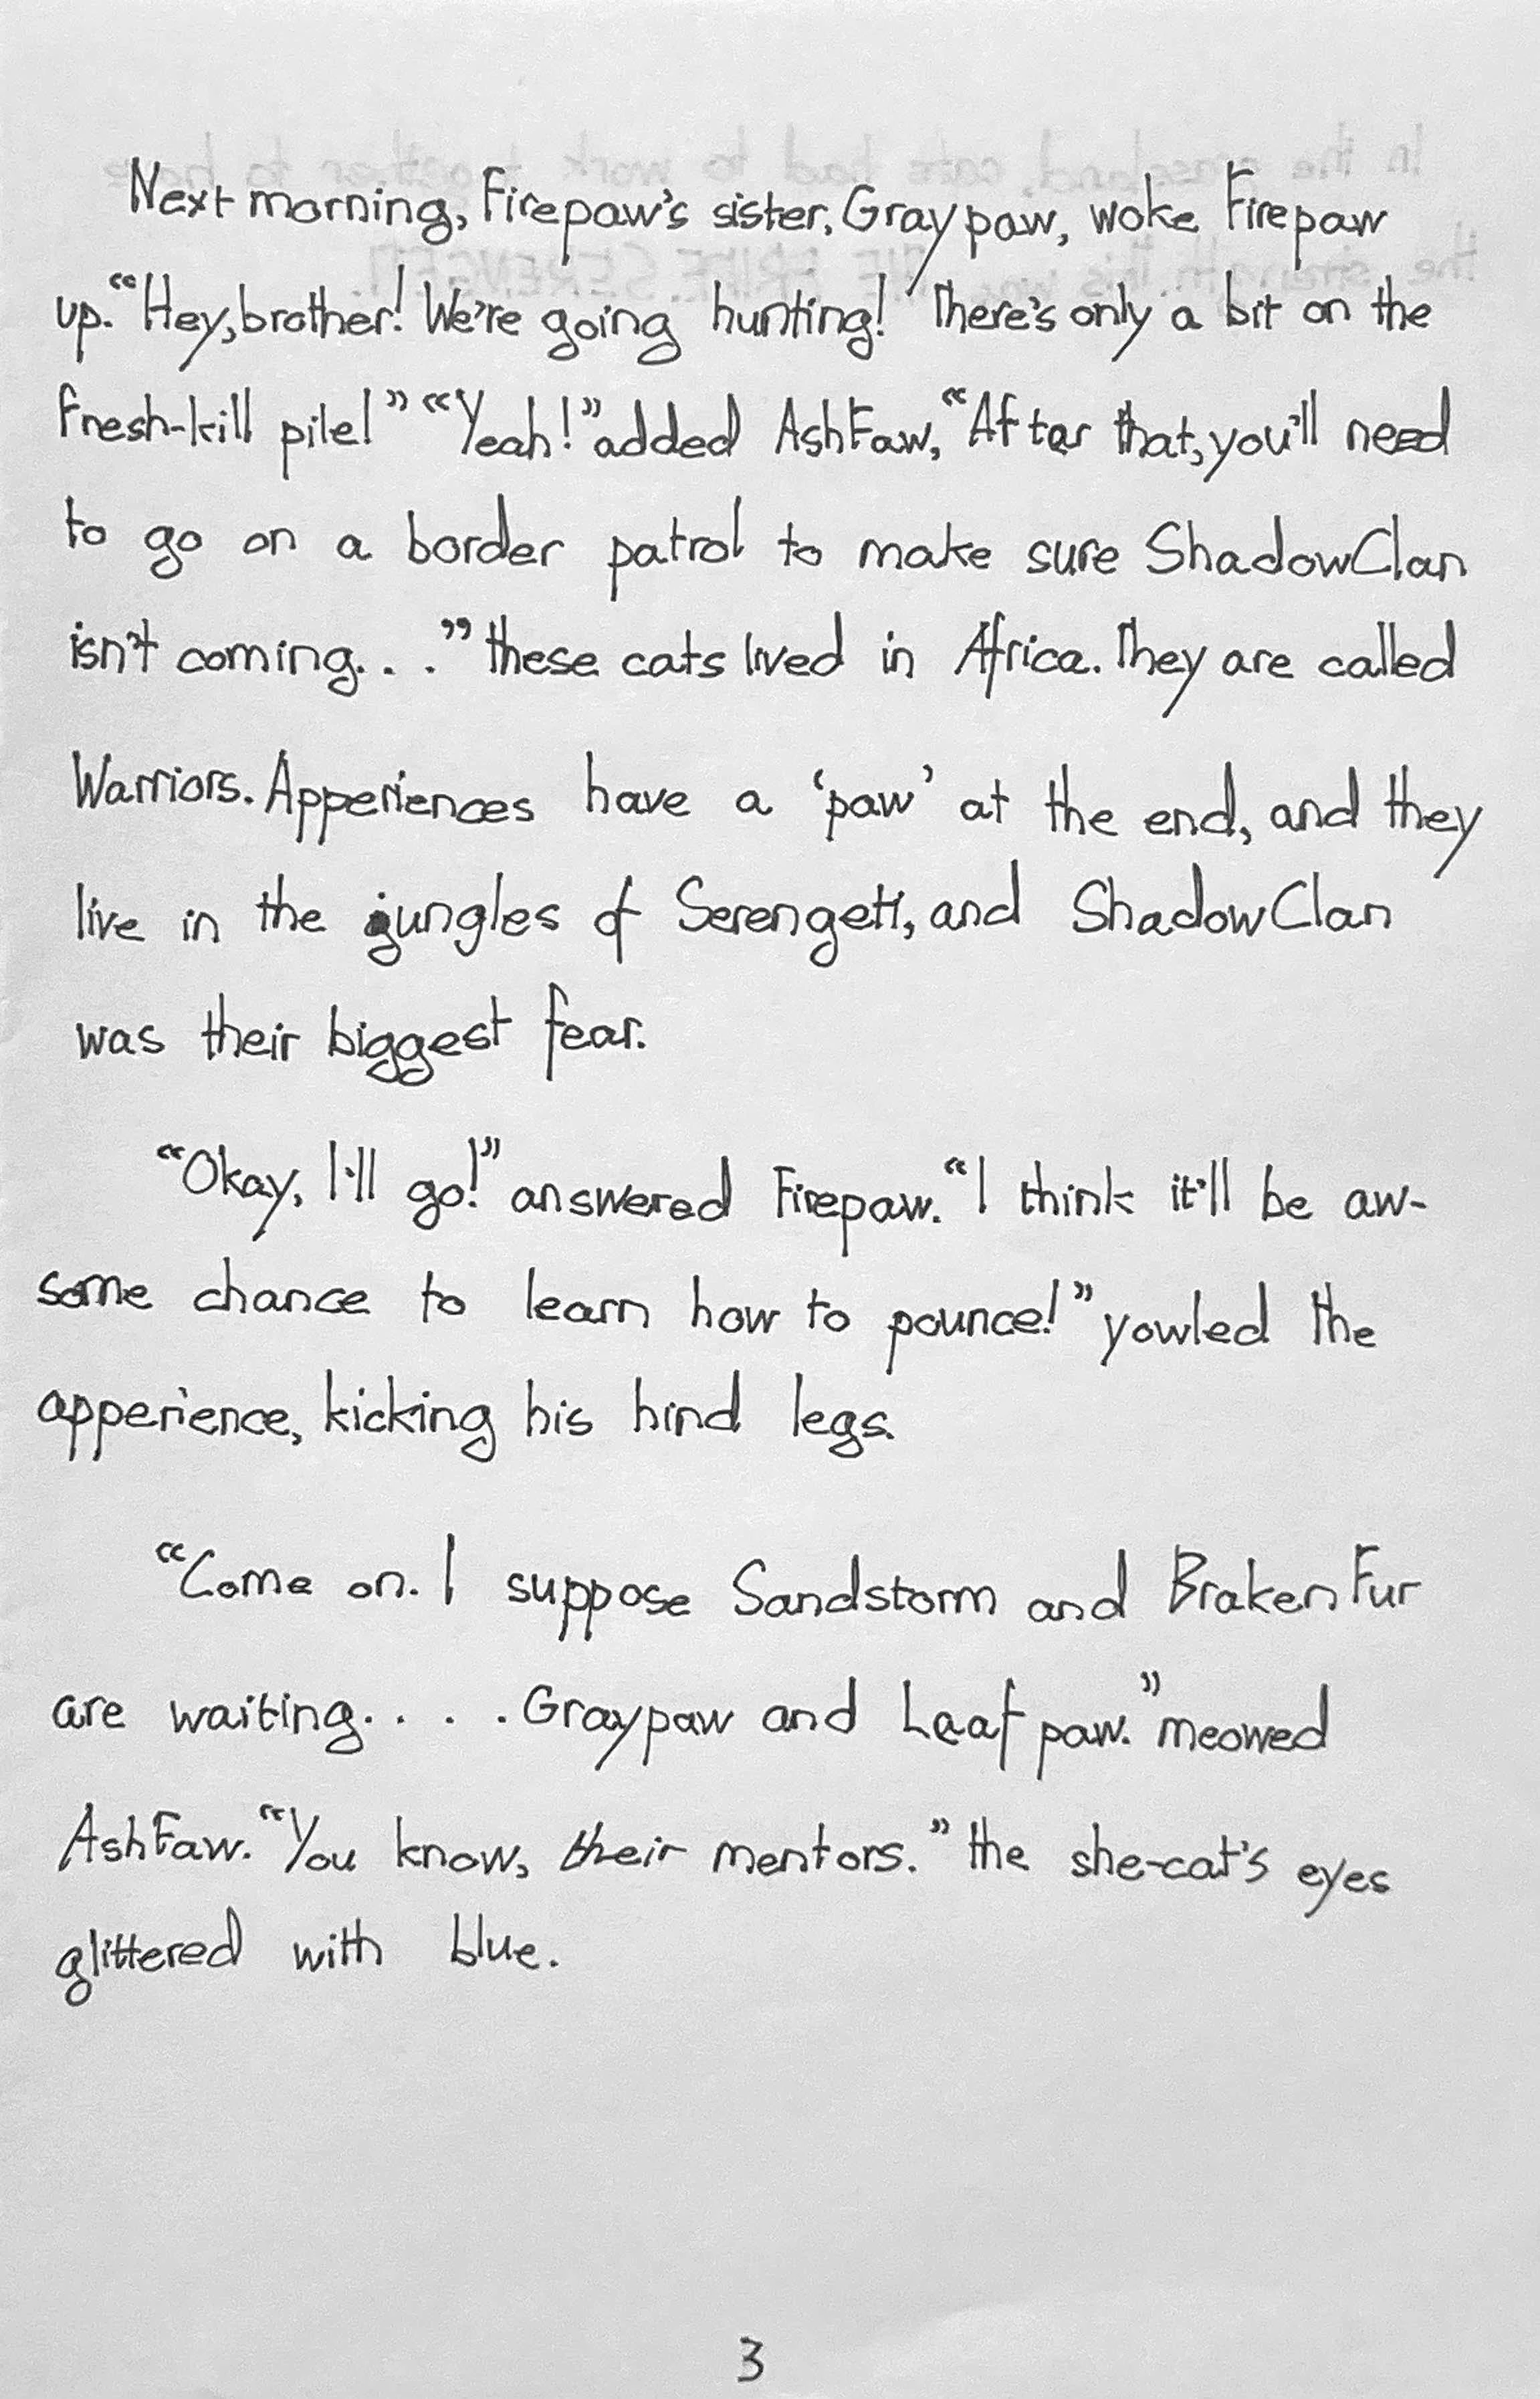 Next morning, Firepaw's sister, Graypaw, woke Firepaw
up. "Hey, brother! We're going hunting! There's only a bit on the
fresh-kill pile!" "Yeah!" added AshFaw, "After that, you'll need
to go on a border patrol to make sure ShadowClan
isn't coming. . ." these cats lived in Africa. They are called
Warriors. Apperiences have a 'paw' at the end, and they
live in the jungles of Serengeti, and ShadowClan
was their biggest fear.
"Okay, I'll go!" answered Firepaw. "I think it'll be aw-
some chance to learn how to pounce!" yowled the
apperience, kicking his hind legs.
"Come on. I suppose Sandstorm and BrakenFur
are waiting. . . . Graypaw and Leafpaw." meowed
AshFaw. "You know, their mentors." the she-cat's eyes
glittered with blue.
3